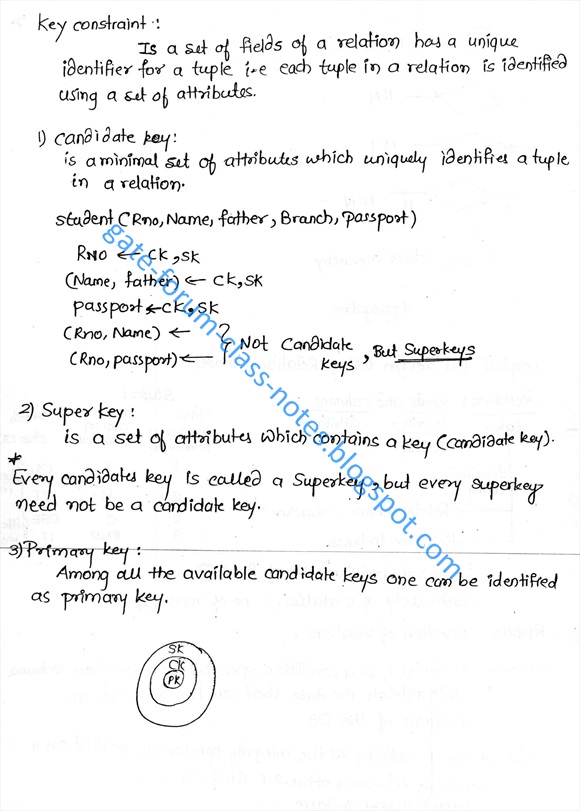 Key constraint :
Is a set of fields of a relation has a unique
identifier for a tuple i.e each tuple in a relation is identified
using a set of attributes.
1) Candidate key:
is a minimal set of attributes which uniquely identifies a tuple
in a relation.
student (Rno, Name, father, Branch, passport)
RNO ← CK, SK
(Name, father) ← CK, SK
passport ← CK, SK
(Rno, Name) ←
(Rno, passport) ←
} Not Candidate
keys, But Superkeys
2) Super key :
is a set of attributes which contains a key (candidate key).
*
Every candidates key is called a Superkey, but every superkey
need not be a candidate key.
3) Primary key :
Among all the available candidate keys one can be identified
as primary key.
SK
CK
PK
gate-forum-class-notes.blogspot.com